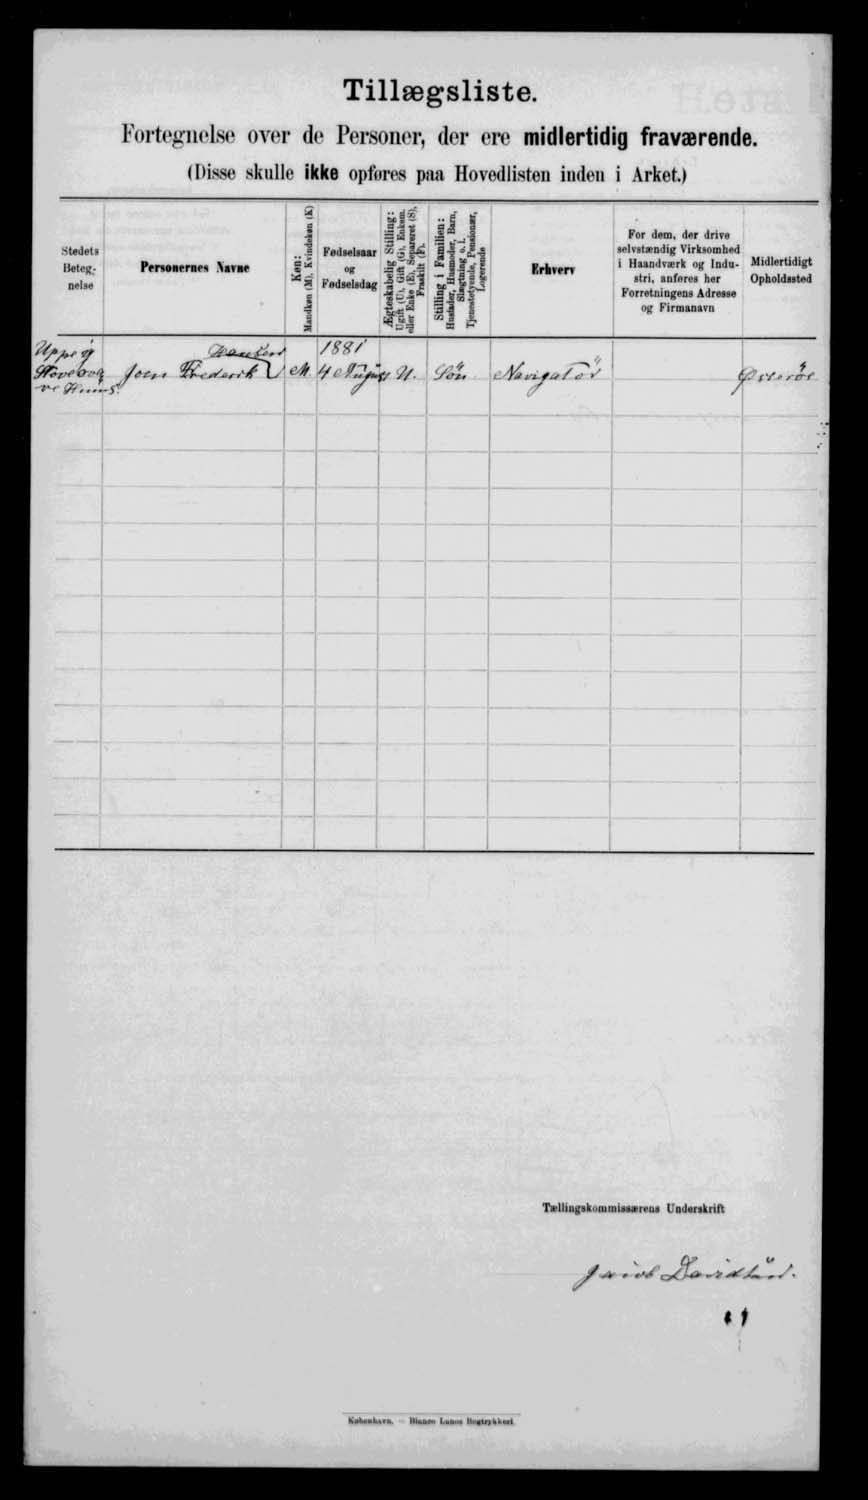 Tillægsliste.
Fortegnelse over de Personer, der ere midlertidig fraværende.
(Disse skulle ikke opføres paa Hovedlisten inden i Arket.)
Stedets
Beteg-
nelse
Personernes Navne
Køn:
Mandkøn (M), Kvindekøn (K)
Fødselsaar
og
Fødselsdag
Ægteskabelig Stilling:
Ugift (U), Gift (G), Enkem.
eller Enke (E), Separeret (S),
Fraskilt (F).
Stilling i Familien:
Husfader, Husmoder, Barn,
Slægtning o. l.
Tjenestetyende, Pensionær,
Logerende
Erhverv
For dem, der drive
selvstændig Virksomhed
i Haandværk og Indu-
stri, anføres her
Forretningens Adresse
og Firmanavn
Midlertidigt
Opholdssted
Uppe i
Joen Frederik Hansen
M.
1881
4 August
U.
Sön
Navigatör
Österöe
Tællingskommissærens Underskrift
Davidsen.
København. – Bianco Lunos Bogtrykkeri.